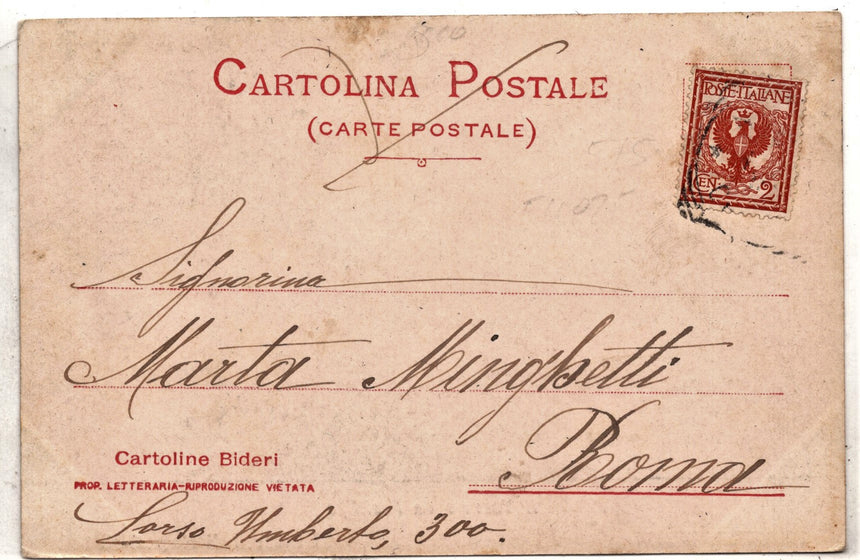 CARTOLINA POSTALE
(CARTE POSTALE)
POSTE·ITALIANE
CEN. 2
Signorina
Marta Minghetti
Roma
Cartoline Bideri
PROP. LETTERARIA-RIPRODUZIONE VIETATA
Corso Umberto, 300.